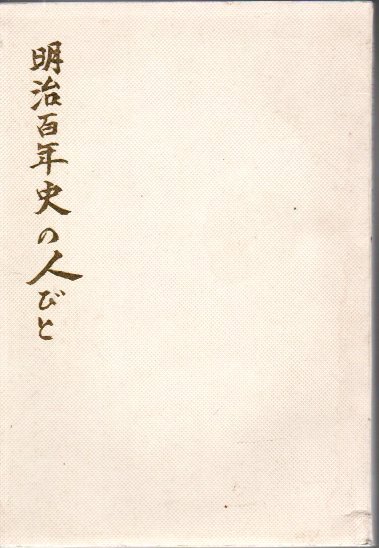 明治百年史の人びと